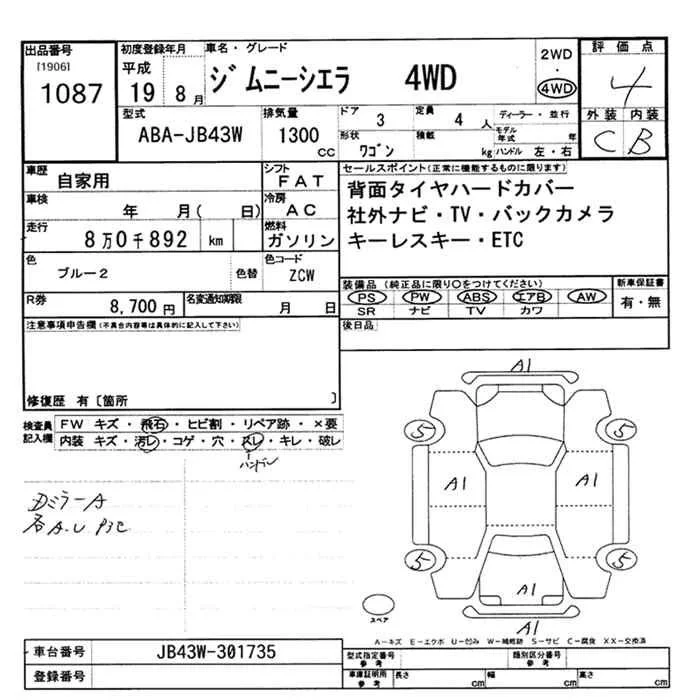 出品番号 初度登録年月 車名・グレード 2WD 評価点
[1906] 平成 ジムニーシエラ 4WD ・ 4
1087 19 8月 4WD 外装 内装
型式 排気量 ドア 定員 ディーラー・並行 C B
ABA-JB43W 1300 3 4 人 モデル年式 年
cc 形状 ワゴン 積載 kg ハンドル 左・右
車歴 自家用 シフト FAT セールスポイント(正常に機能するものに限ります)
車検 年 月( 日) 冷房 AC 背面タイヤハードカバー
社外ナビ・TV・バックカメラ
走行 8万0千892 km 燃料 ガソリン キーレスキー・ETC
色 ブルー2 色替 色コード ZCW
装備品(純正品に限り○をつけてください) 新車保証書
R券 8,700円 名変通知期限 月 日 PS PW ABS エアB AW 有・無
SR ナビ TV カワ
注意事項申告欄(不具合内容等は具体的に記入して下さい) 後日品
修復歴 有〔箇所 〕
検査員記入欄 FW キズ・飛石・ヒビ割・リペア跡・×要
内装 キズ・汚レ・コゲ・穴・スレ・キレ・破レ
ハンドル
A1
5 5
A1 A1
ミラーA
各A.U P3C
5 5
A1
スペア
A1
A-キズ E-エクボ U-凹み W-補修跡 S-サビ C-腐食 XX-交換済
車台番号 JB43W-301735 型式指定番号 参考 類別区分番号 参考
登録番号 車庫証明所 参考 長さ cm 幅 cm 高さ cm